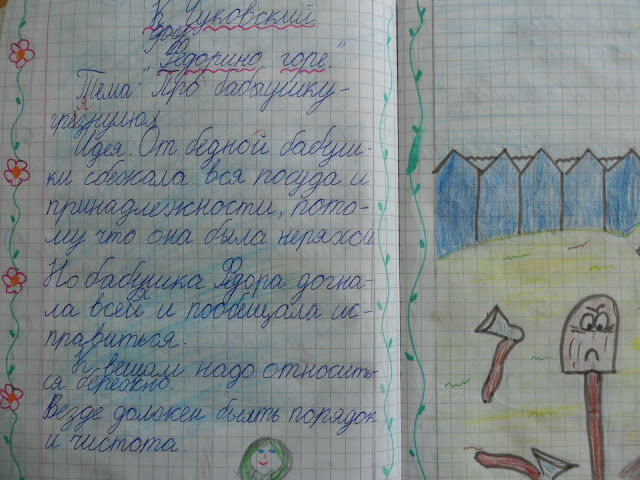 К Чуковский
"Федорино горе."
Тема: "Про бабушку-
грязнулю".
Идея: От бедной бабуш-
ки сбежала вся посуда и
принадлежности, пото-
му что она была неряхой.
Но бабушка Федора догна-
ла всех и пообещала ис-
правиться.
К вещам надо относить-
ся бережно.
Везде должен быть порядок
и чистота.